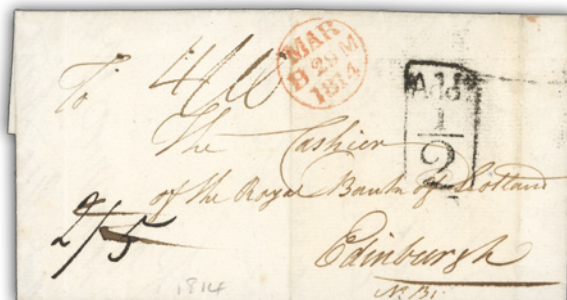 MAR
B 29 M
1814
Add.
1
2
To
The Cashier
of the Royal Bank of Scotland
Edinburgh
N.B.
2/5
1814